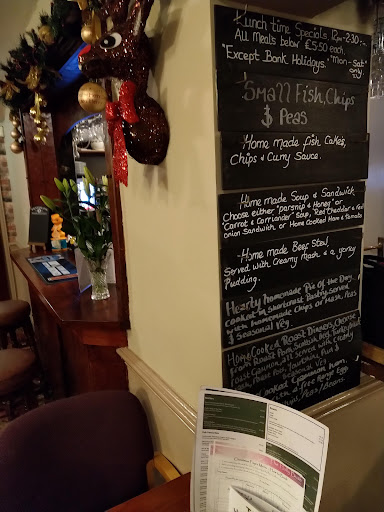 Lunch time Specials. 12pm - 2.30
All Meals below £5.50 each.
"Except Bank Holidays. "Mon - Sat"
only.
Small Fish, Chips
& Peas
Home made fish Cakes,
Chips & Curry Sauce.
Home made Soup & Sandwich
Choose either "parsnip & Honey" or
"Carrot & Corriander" Soup, Red Cheddar & red
onion Sandwich or Home Cooked Ham & Tomato
Home made Beef Stew
Served with Creamy Mash & a yorkey
Pudding.
Hearty homemade Pie of the Day
cooked in Shortcrust Pastry Served
with homemade Chips or Mash, Peas
& Seasonal Veg.
Home Cooked Roast Dinners, Choose
from Roast Pork,
roast Gammon, All Served with Creamy
Mash, Roast Pots, Yorkshire Pud &
Seasonal Veg
Cooked Gammon Ham,
Free Range Egg
Peas/Beans.